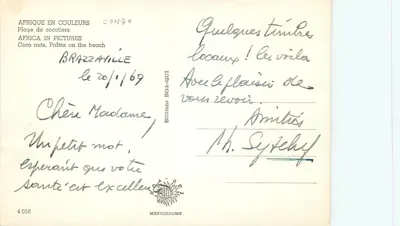 AFRIQUE EN COULEURS
CONGO
Plage de cocotiers
AFRICA IN PICTURES
Coco nuts, Palms on the beach
BRAZZAVILLE
le 20/1/69
Chère Madame,
Un petit mot,
Esperant que votre
santé est excellente
4016
MEXICHROME
Quelques timbres
locaux ! les voila
Avec le plaisir de
vous revoir.
Amitiés